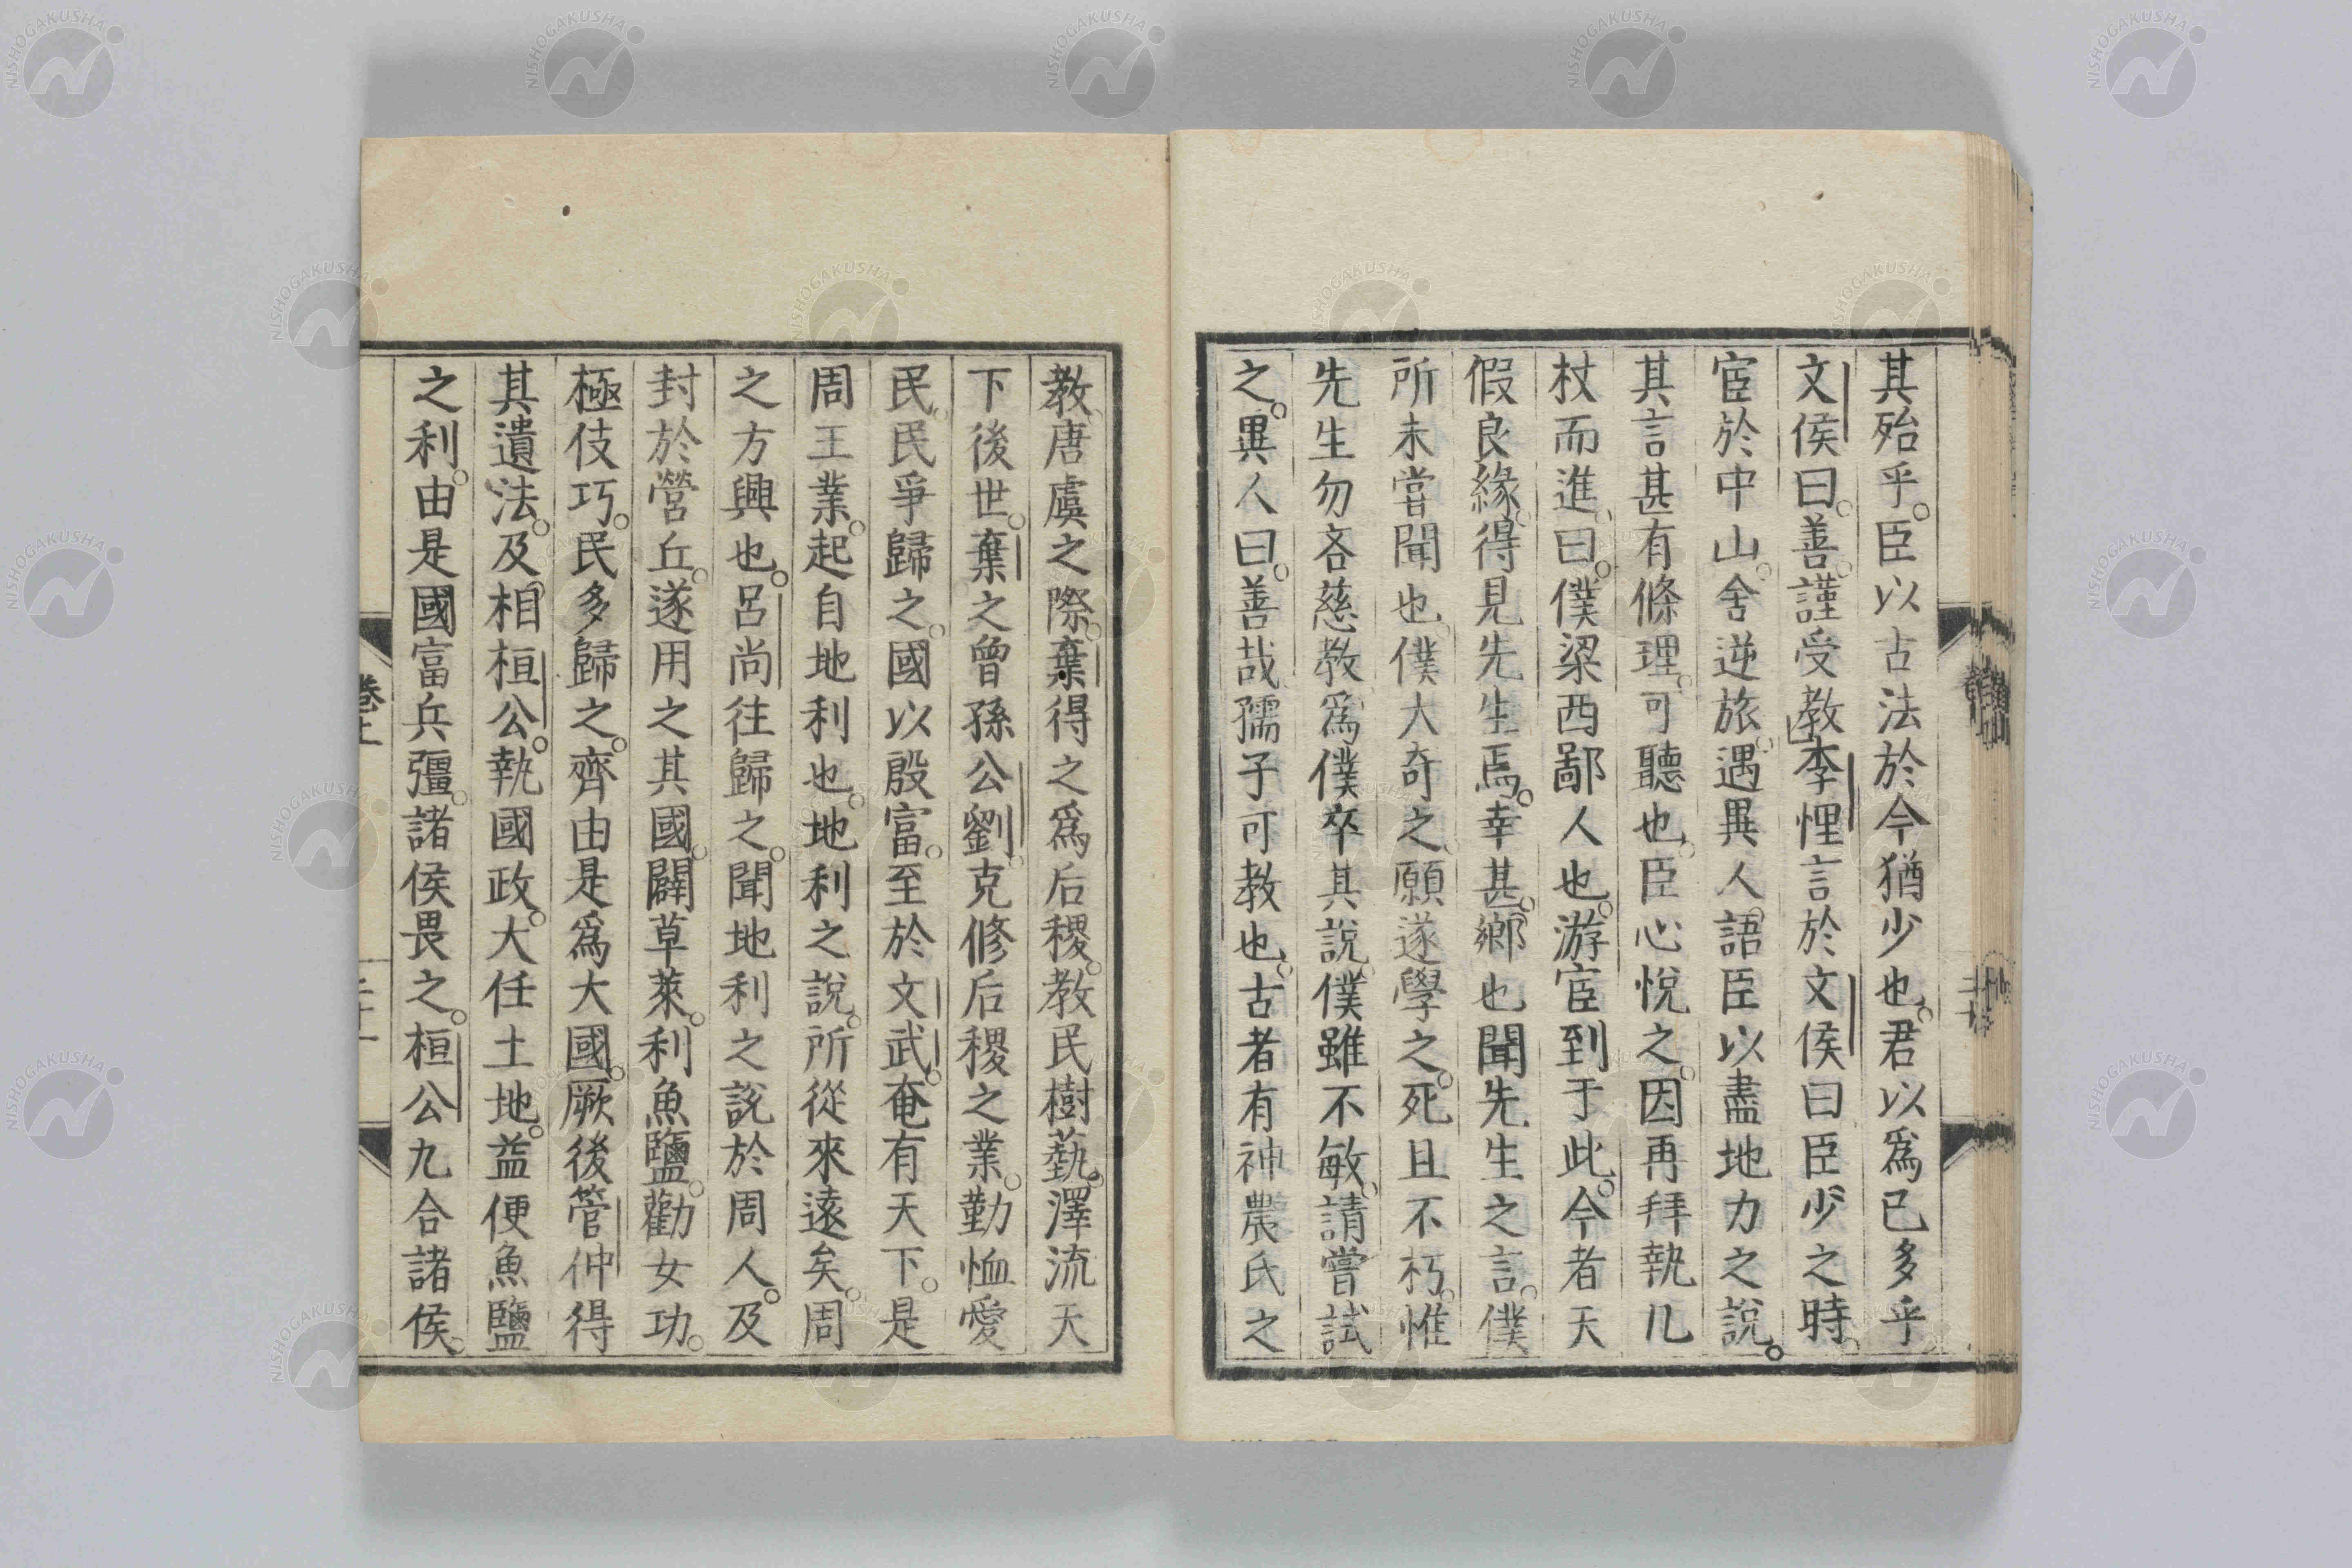 其殆乎。臣以古法於今猶少也。君以爲已多乎
文侯曰。善。謹受教」李悝言於文侯曰臣少之時。
宦於中山。舍逆旅。遇異人。語臣以盡地力之說。
其言甚有條理。可聽也。臣心悅之。因再拜執几
杖而進。曰。僕梁西鄙人也。游宦到于此。今者天
假良緣。得見先生焉。幸甚。鄉也聞先生之言。僕
所未嘗聞也。僕大奇之。願遂學之。死且不朽。惟
先生勿吝慈教。爲僕卒其說。僕雖不敏。請嘗試
之。異人曰。善哉孺子可教也。古者有神農氏之
教。唐虞之際。棄得之爲后稷。教民樹蓺。澤流天
下後世。棄之曾孫公劉。克修后稷之業。勤恤愛
民。民爭歸之。國以殷富。至於文武。奄有天下。是
周王業。起自地利也。地利之說。所從來遠矣。周
之方興也。呂尚往歸之。聞地利之說於周人。及
封於營丘。遂用之其國。闢草萊。利魚鹽。勸女功。
極伎巧。民多歸之。齊由是爲大國。厥後管仲得
其遺法。及相桓公。執國政。大任土地。益便魚鹽
之利。由是國富兵彊。諸侯畏之。桓公九合諸侯。
卷上
NISHOGAKUSHA